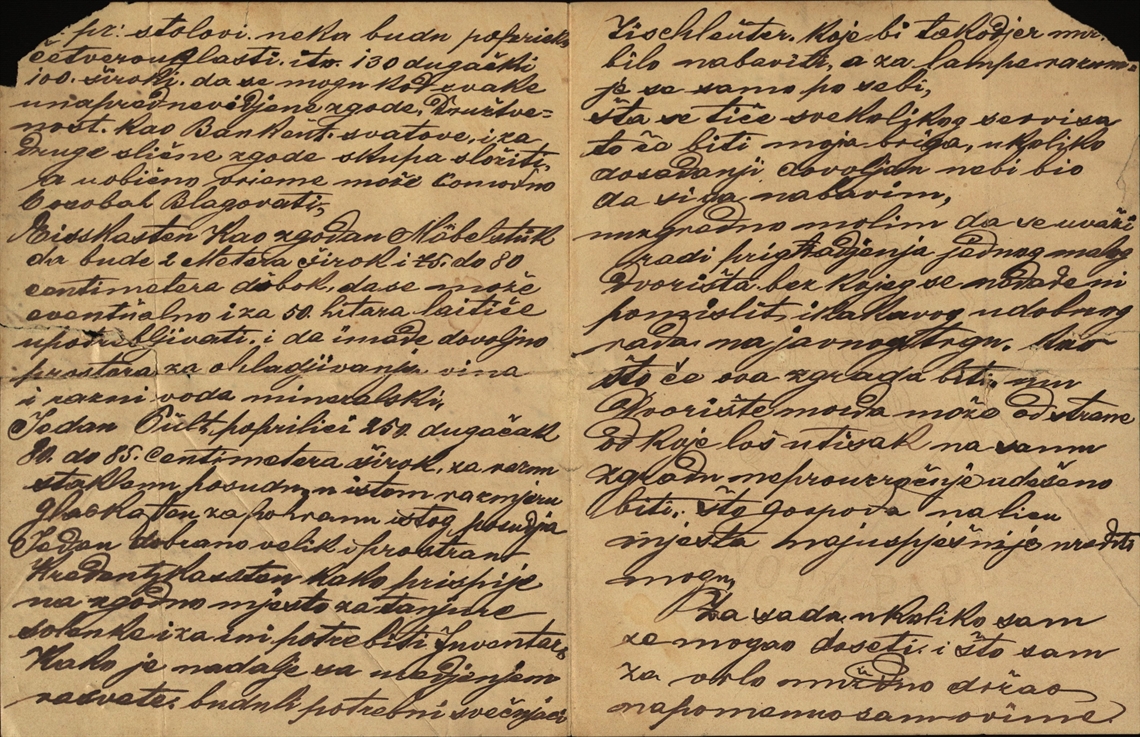 pr. stolovi. neka budu poprieko
četverouglasti. itv. 130 dugački
100. široki. da se mogu kod svake
unapred nevidjene zgode, Društve=
nost. kao Bankett. svatove, i za
druge slične zgode skupa složiti,
a u obično vrieme može Comodno
6 osobah Blagovati,
Eisskasten kao zgodan Möbelstük
da bude 2 Metera širok i 75. do 80
centimetera dubok, da se može
eventualno i za 50. litara laitiće
upotrebljivati. i da imade dovoljno
prostara za ohladjivanje vina
i razni voda mineralski,
Jedan Pult, poprilici 250. dugačak
80. do 85. Centimetera širok, za raznu
staklenu posudu, u istom razmjeru
Glaskasten za pohranu istog posudja
Jedan dobrano velik i prostran
Kredentzkassten kako prispije
na zgodno mjesto za tanjure
solenke i za ini potrebiti Inventar,
Kako je nadalje sa uvedjenjem
rasvete. buduli potrebni svečnjaci
Tischleuter. koje bi takodjer
bilo nabaviti, a za lampe razum=
je se samo po sebi,
šta se tiče svekolikog servisa
to će biti moja briga, ukoliko
dosadanji dovoljan nebi bio
da si ga nabavim,
nuzgredno molim da se uvaži
radi prigradjenja jednog malog
Dvorišta bez kojeg se nedade ni
pomislit, ikakavog udobnog
rada. na javnog trgu. kao
što će ova zgrada biti, nu
Dvorište mora može od strane
od koje loš utisak na samu
zgradu neprouzročuje udešeno
biti, što Gospoda na licu
mjesta najuspješnije urediti
mogu,
Za sada, ukoliko sam
se mogao doseti. i što sam
za vrlo nuždno držao
napomenuo samovime.